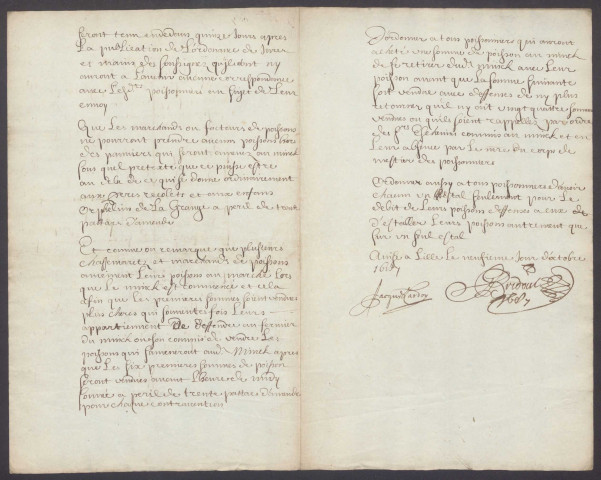 seront tenu endedans quinze Jours apres
La publication de Lordonnance de
et mains des soussignes qu'ils n'ont ny
auront a Lavenir aucune correspondance
avec Lesd poissonniers au sujet de Leur
envoy
Que Les marchands ou facteurs de poissons
ne pourront prendre aucun poissons hors
des panniers qui seront amenez au minck
sous quel pretexte que ce puisse estre
au dela de ce qui se donne ordinairement
aux peres recolets et aux enfans
orphelins de La Grange a peril de trente
pattars d'amende
Et comme on remarque que plusieurs
chassemarets et marchands de poissons
amennent Leurs poissons au marché Lors
que Le minck est commencé et cela
afin que Les premieres sommes soient vendues
plus cheres qui souventes fois Leurs
appartiennent De deffendre au fermier
du minck ou son commis de vendre Les
poissons qui s'ameneront aud. Minck apres
que Les six premieres sommes de poisson
seront vendues avant L'heure de midy
sonné a peril de trente pattars d'amende
pour chaque contravention
D'ordonner a tous poissonniers qui auront
achete une somme de poisson au minck
de se retirer dud. minck avec Leur
poisson avant que La somme suivante
soit vendue avec deffenses de ny plus
retourner quil ny ait vingt quattre sommes
vendues ou quils soient rappellez par ordre
des Srs Eschevins commis au minck et en
Leurs absence par Le du corps de
mestier des poissonniers
Ordonner aussy a tous poissonniers d'avoir
chacun un estal seulement pour Le
debit de Leurs poissons deffenses a eux de
d'estaller Leurs poissons autrement que
sur un seul estal
A Lille Le neufiesme Jour d'octobre
1687
1687